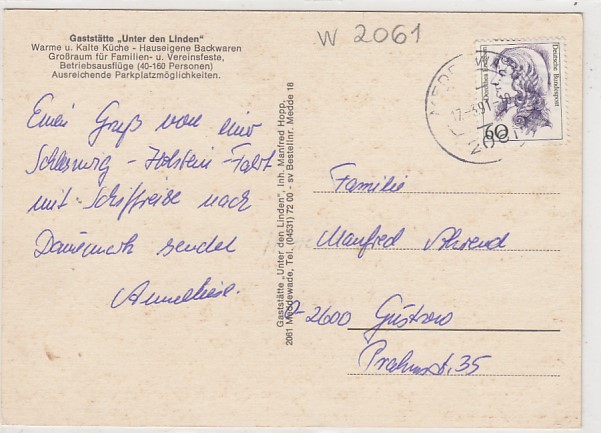 Gaststätte „Unter den Linden"
Warme u. Kalte Küche - Hauseigene Backwaren
Großraum für Familien- u. Vereinsfeste,
Betriebsausflüge (40-160 Personen)
Ausreichende Parkplatzmöglichkeiten.
W 2061
Einen Gruß von einer
Schleswig-Holstein-Fahrt
mit Schiffreise nach
Dänemark sendet
Anneliese.
Gaststätte „Unter den Linden", Inh. Manfred Hopp,
2061 Meddewade, Tel. (04531) 72 00 - sv Bestellnr. Medde 18
Deutsche Bundespost
60
Familie
Manfred Ahrend
2600 Güstrow
35